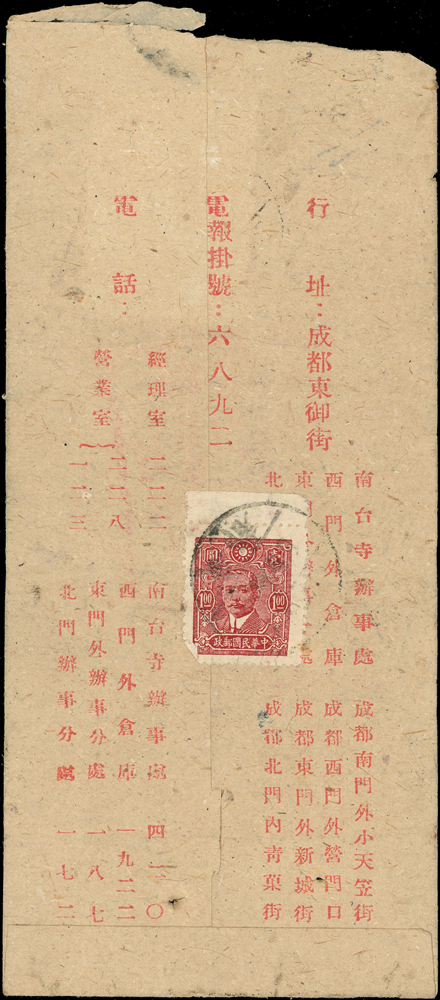 行址：成都東御街
南台寺辦事處 成都南門外小天竺街
西門外倉庫 成都西門外營門口
東門外辦事處 成都東門外新城街
北 成都北門內靑菓街
電報掛號：六八九二
電話：
經理室 二二二
營業室 二二八
一二三
南台寺辦事處 四二〇
西門外倉庫 一九二二
東門外辦事分處 一八七
北門辦事分處 一七二
圓 壹
1.00 1.00
中華民國郵政